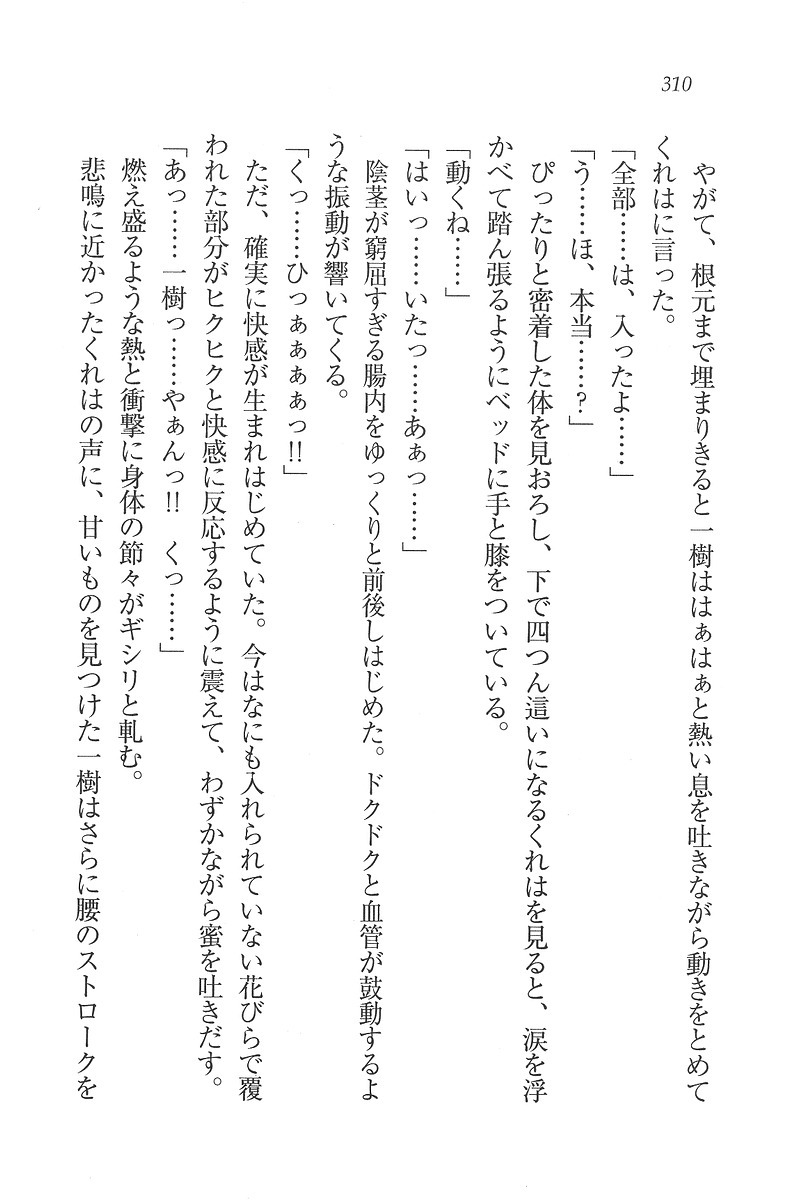 310
やがて、根元まで埋まりきると一樹ははぁはぁと熱い息を吐きながら動きをとめて
くれはに言った。
「全部……は、入ったよ……」
「う……ほ、本当……？」
ぴったりと密着した体を見おろし、下で四つん這いになるくれはを見ると、涙を浮
かべて踏ん張るようにベッドに手と膝をついている。
「動くね……」
「はいっ……いたっ……あぁっ……」
陰茎が窮屈すぎる腸内をゆっくりと前後しはじめた。ドクドクと血管が鼓動するよ
うな振動が響いてくる。
「くっ……ひっぁぁぁぁっ!!」
ただ、確実に快感が生まれはじめていた。今はなにも入れられていない花びらで覆
われた部分がヒクヒクと快感に反応するように震えて、わずかながら蜜を吐きだす。
「あっ……一樹っ……やぁんっ!!　くっ……」
燃え盛るような熱と衝撃に身体の節々がギシリと軋む。
悲鳴に近かったくれはの声に、甘いものを見つけた一樹はさらに腰のストロークを